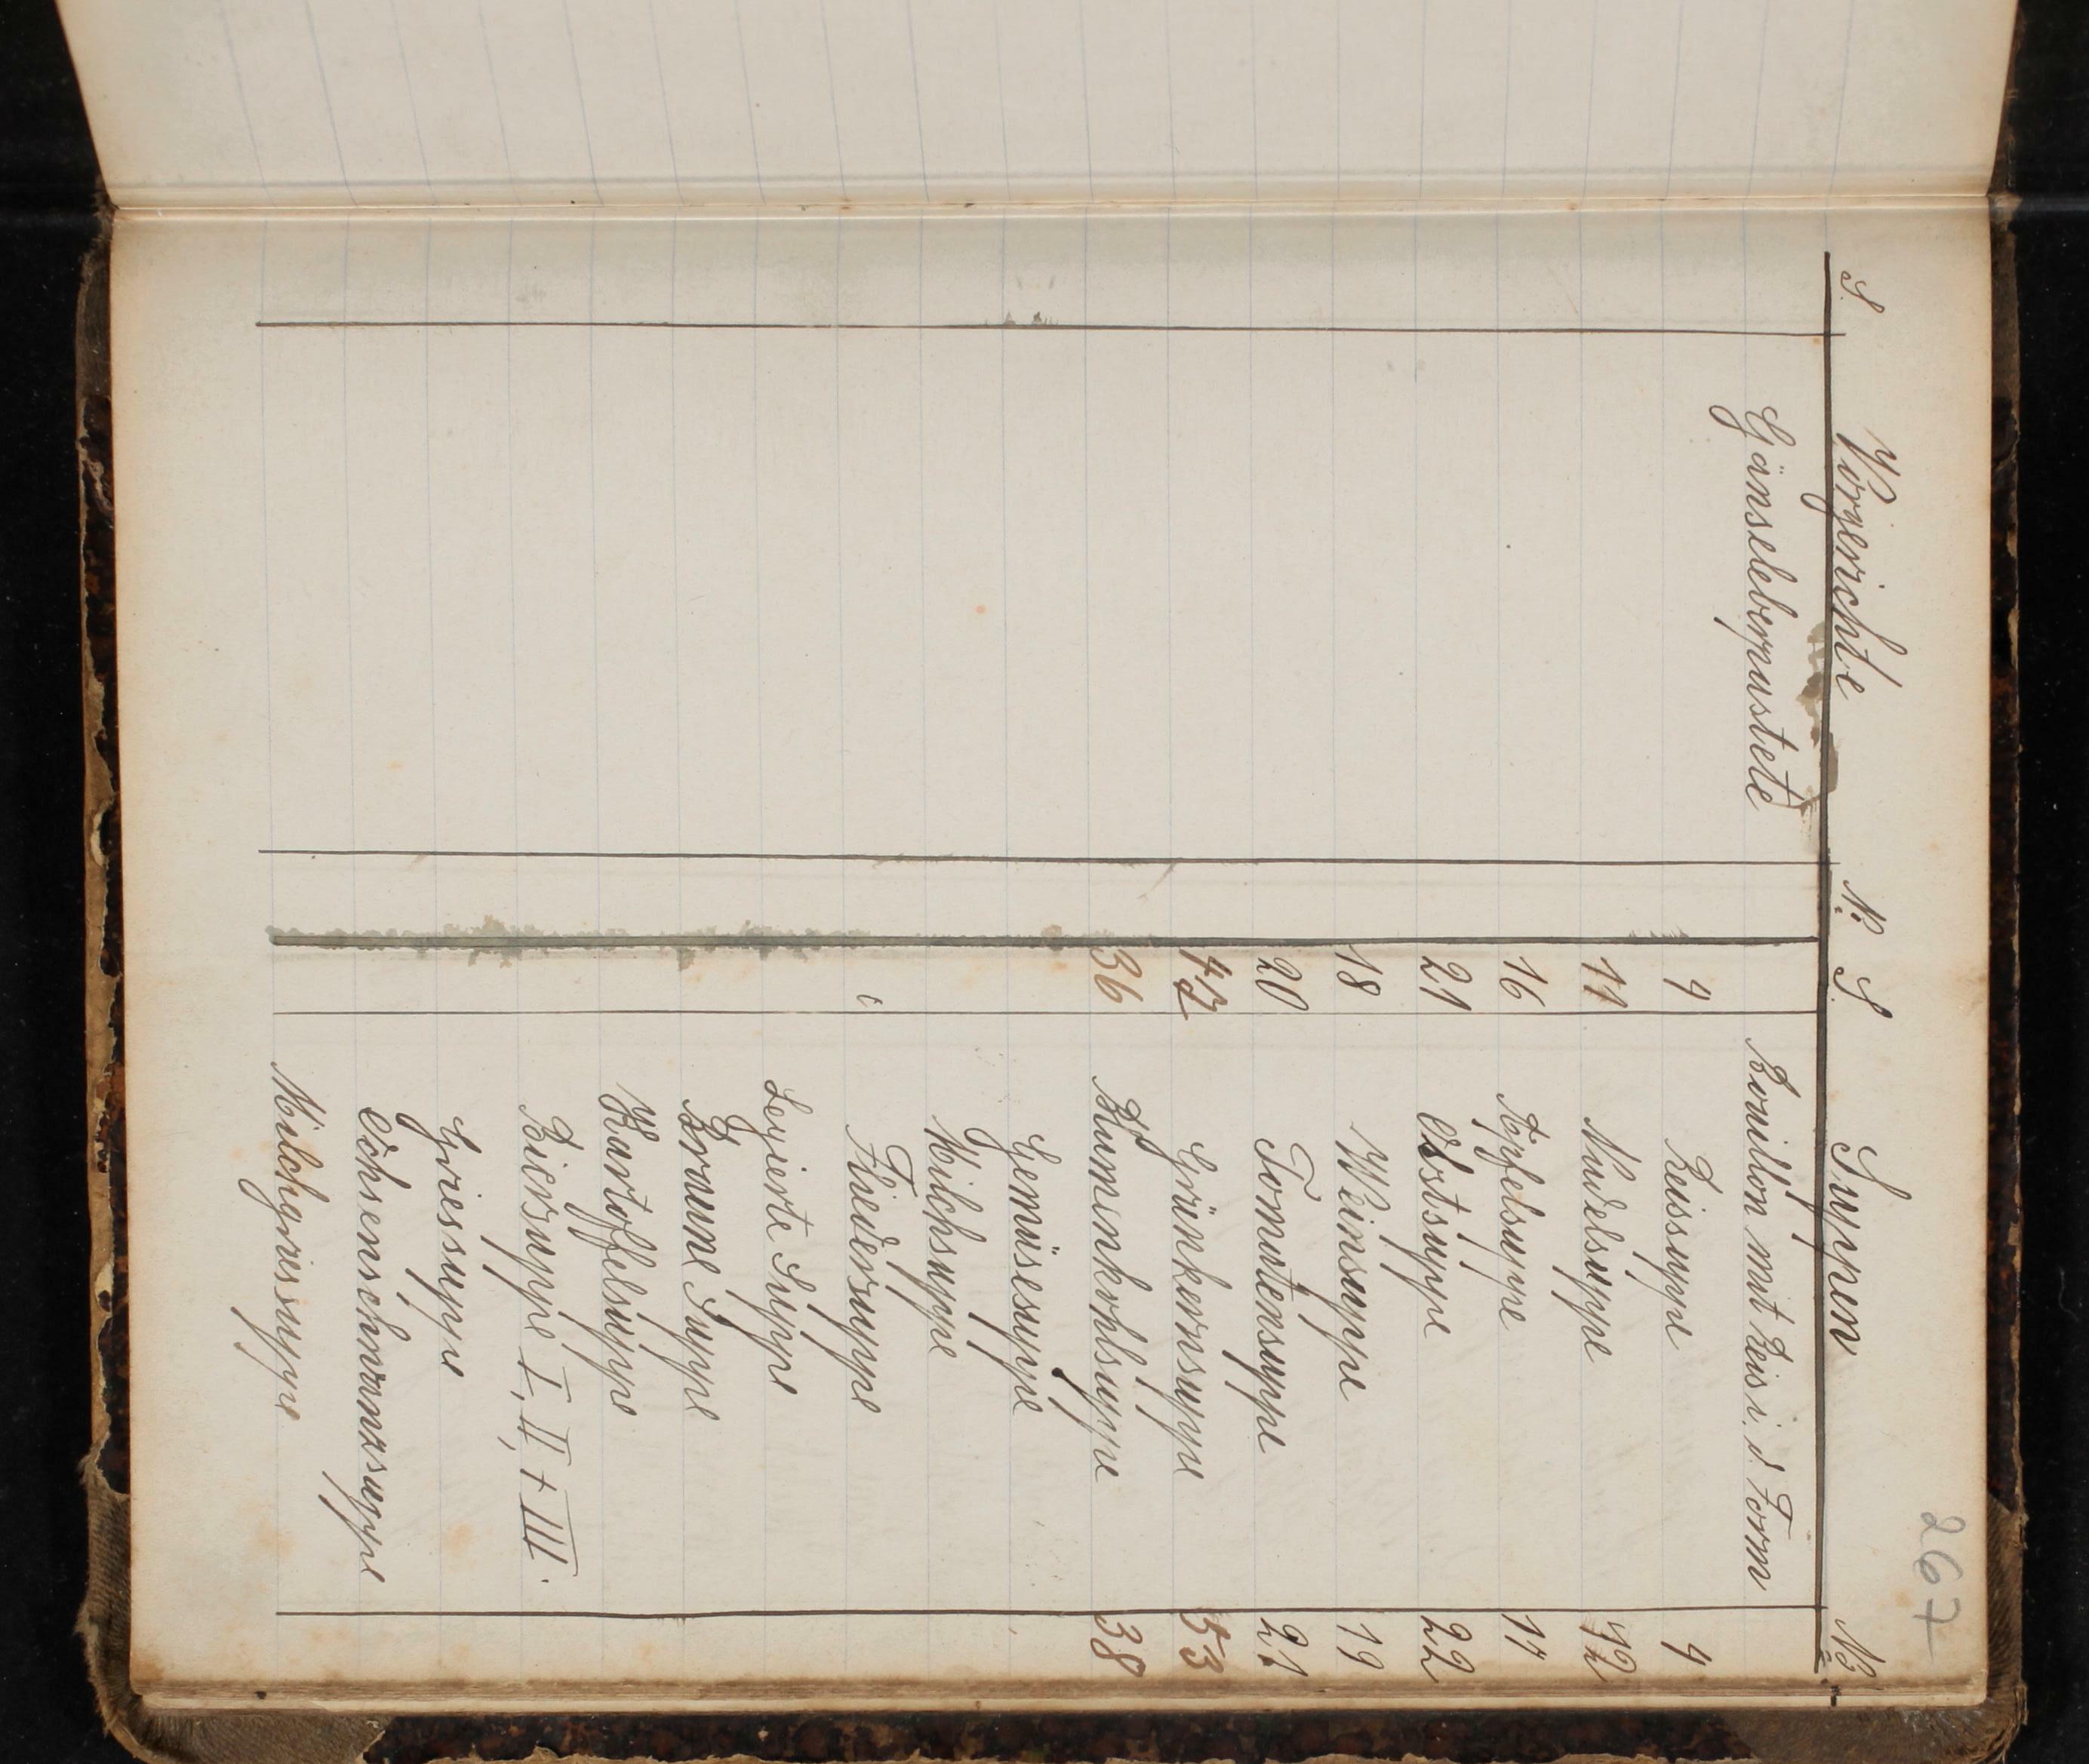 267
S. Vorgerichte Nº. S. Suppen Nº
Gänseleberpastete Bouillon mit Reis i. d. Form
7 Reissuppe 7
11 Nudelsuppe 12
16 Apfelsuppe 17
21 Obstsuppe 22
18 Weinsuppe 19
20 Tomatensuppe 21
Grünkernsuppe 53
36 Blumenkohlsuppe 38
Gemüsesuppe
Milchsuppe
Fliedersuppe
Legierte Suppe
Braune Suppe
Kartoffelsuppe
Biersuppe I, II + III.
Griessuppe
Ochsenschwanzsuppe
Milchgriessuppe